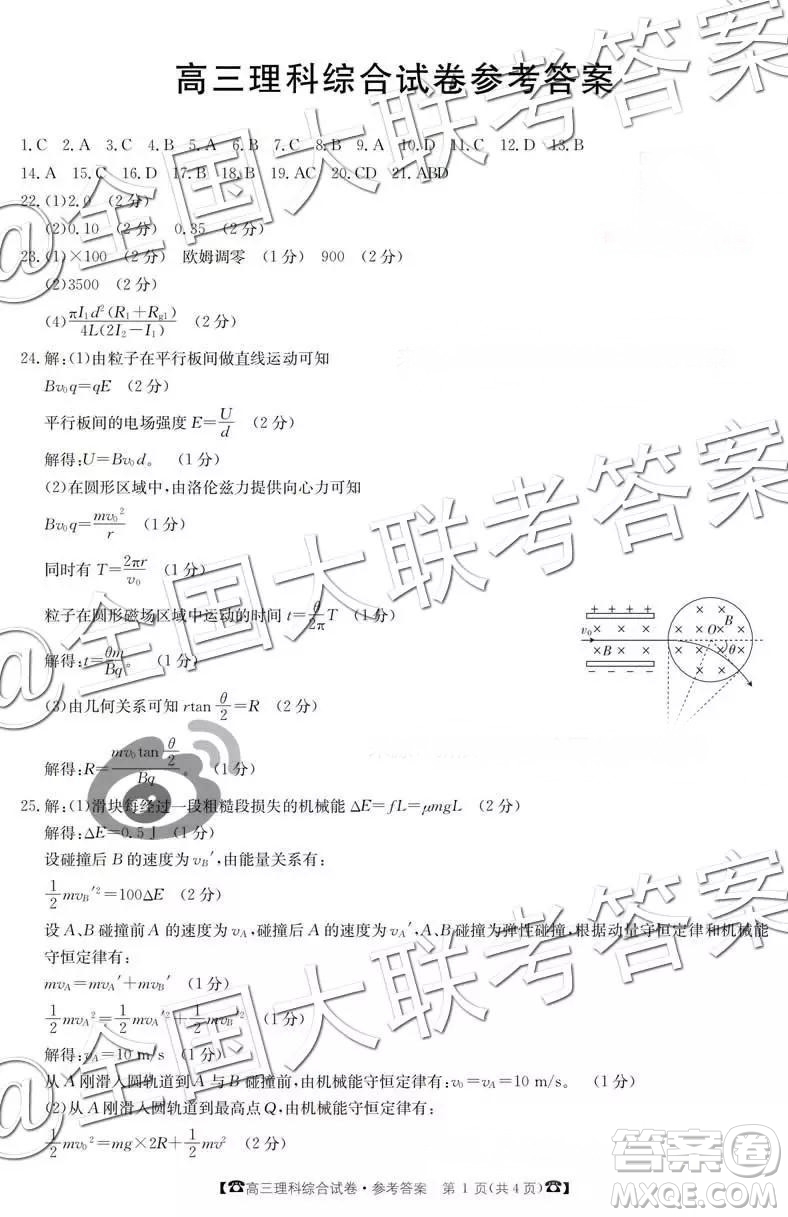 高三理科综合试卷参考答案
1.C 2.A 3.C 4.B 5.A 6.B 7.C 8.B 9.A 10.C 11.C 12.D 13.B
14.A 15.C 16.D 17.B 18.B 19.AC 20.CD 21.ABD
22.(1)2.0 (2分)
(2)0.10 (2分) 0.35 (2分)
23.(1)×100 (2分) 欧姆调零 (1分) 900 (2分)
(2)3500 (2分)
(4)πI₁d²(R₁+Rg1)/4L(2I₂−I₁) (2分)
24.解:(1)由粒子在平行板间做直线运动可知
Bv₀q=qE (2分)
平行板间的电场强度 E=U/d (2分)
解得:U=Bv₀d。 (1分)
(2)在圆形区域中,由洛伦兹力提供向心力可知
Bv₀q=mv₀²/r (1分)
同时有 T=2πr/v₀ (1分)
粒子在圆形磁场区域中运动的时间 t=θ/2π T (1分)
解得:t=θm/Bq。 (1分)
(3)由几何关系可知 rtan θ/2=R (2分)
解得:R=mv₀tan θ/2 /Bq。 (1分)
++++
v₀ × × ×
× B × ×
----
× × ×
× × B ×
O
× × θ ×
× ×
25.解:(1)滑块每经过一段粗糙段损失的机械能 ΔE=fL=μmgL (2分)
解得:ΔE=0.5 J (1分)
设碰撞后 B 的速度为 vB′,由能量关系有:
1/2 mvB′²=100ΔE (2分)
设 A、B 碰撞前 A 的速度为 vA,碰撞后 A 的速度为 vA′,A、B 碰撞为弹性碰撞,根据动量守恒定律和机械能
守恒定律有:
mvA=mvA′+mvB′ (1分)
1/2 mvA²=1/2 mvA′²+1/2 mvB′² (1分)
解得:vA=10 m/s (1分)
从 A 刚滑入圆轨道到 A 与 B 碰撞前,由机械能守恒定律有:v₀=vA=10 m/s。 (1分)
(2)从 A 刚滑入圆轨道到最高点 Q,由机械能守恒定律有:
1/2 mv₀²=mg×2R+1/2 mv² (2分)
【☎高三理科综合试卷·参考答案 第 1 页(共 4 页)☎】
@全国大联考答案
@全国大联考答案
@全国大联考答案
答案卷
MXQE.COM